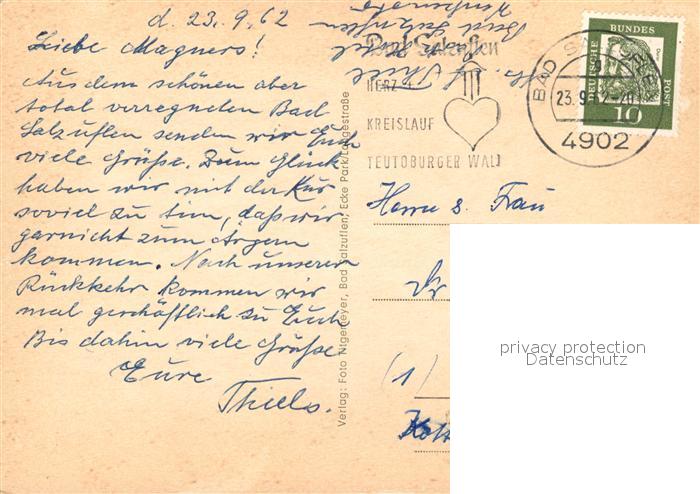 d. 23.9.62
Liebe Magners!
Aus dem schönen aber
total verregneten Bad
Salzuflen senden wir Euch
viele Grüße. Zum Glück
haben wir mit der Kur
soviel zu tun, daß wir
garnicht zum Ärgern
kommen. Nach unserer
Rückkehr kommen wir
mal geschäftlich zu Euch
Bis dahin viele Grüße
Eure
Thiels.
Verlag: Foto Nigemeyer, Bad Salzuflen, Ecke Park/Langestraße
Thiel
Bad Salzuflen
Bad Salzuflen
HERZ
KREISLAUF
TEUTOBURGER WALD
BAD
23.9.
4902
DEUTSCHE BUNDES POST
10
Herrn u. Frau
Dr
(1)
privacy protection
Datenschutz